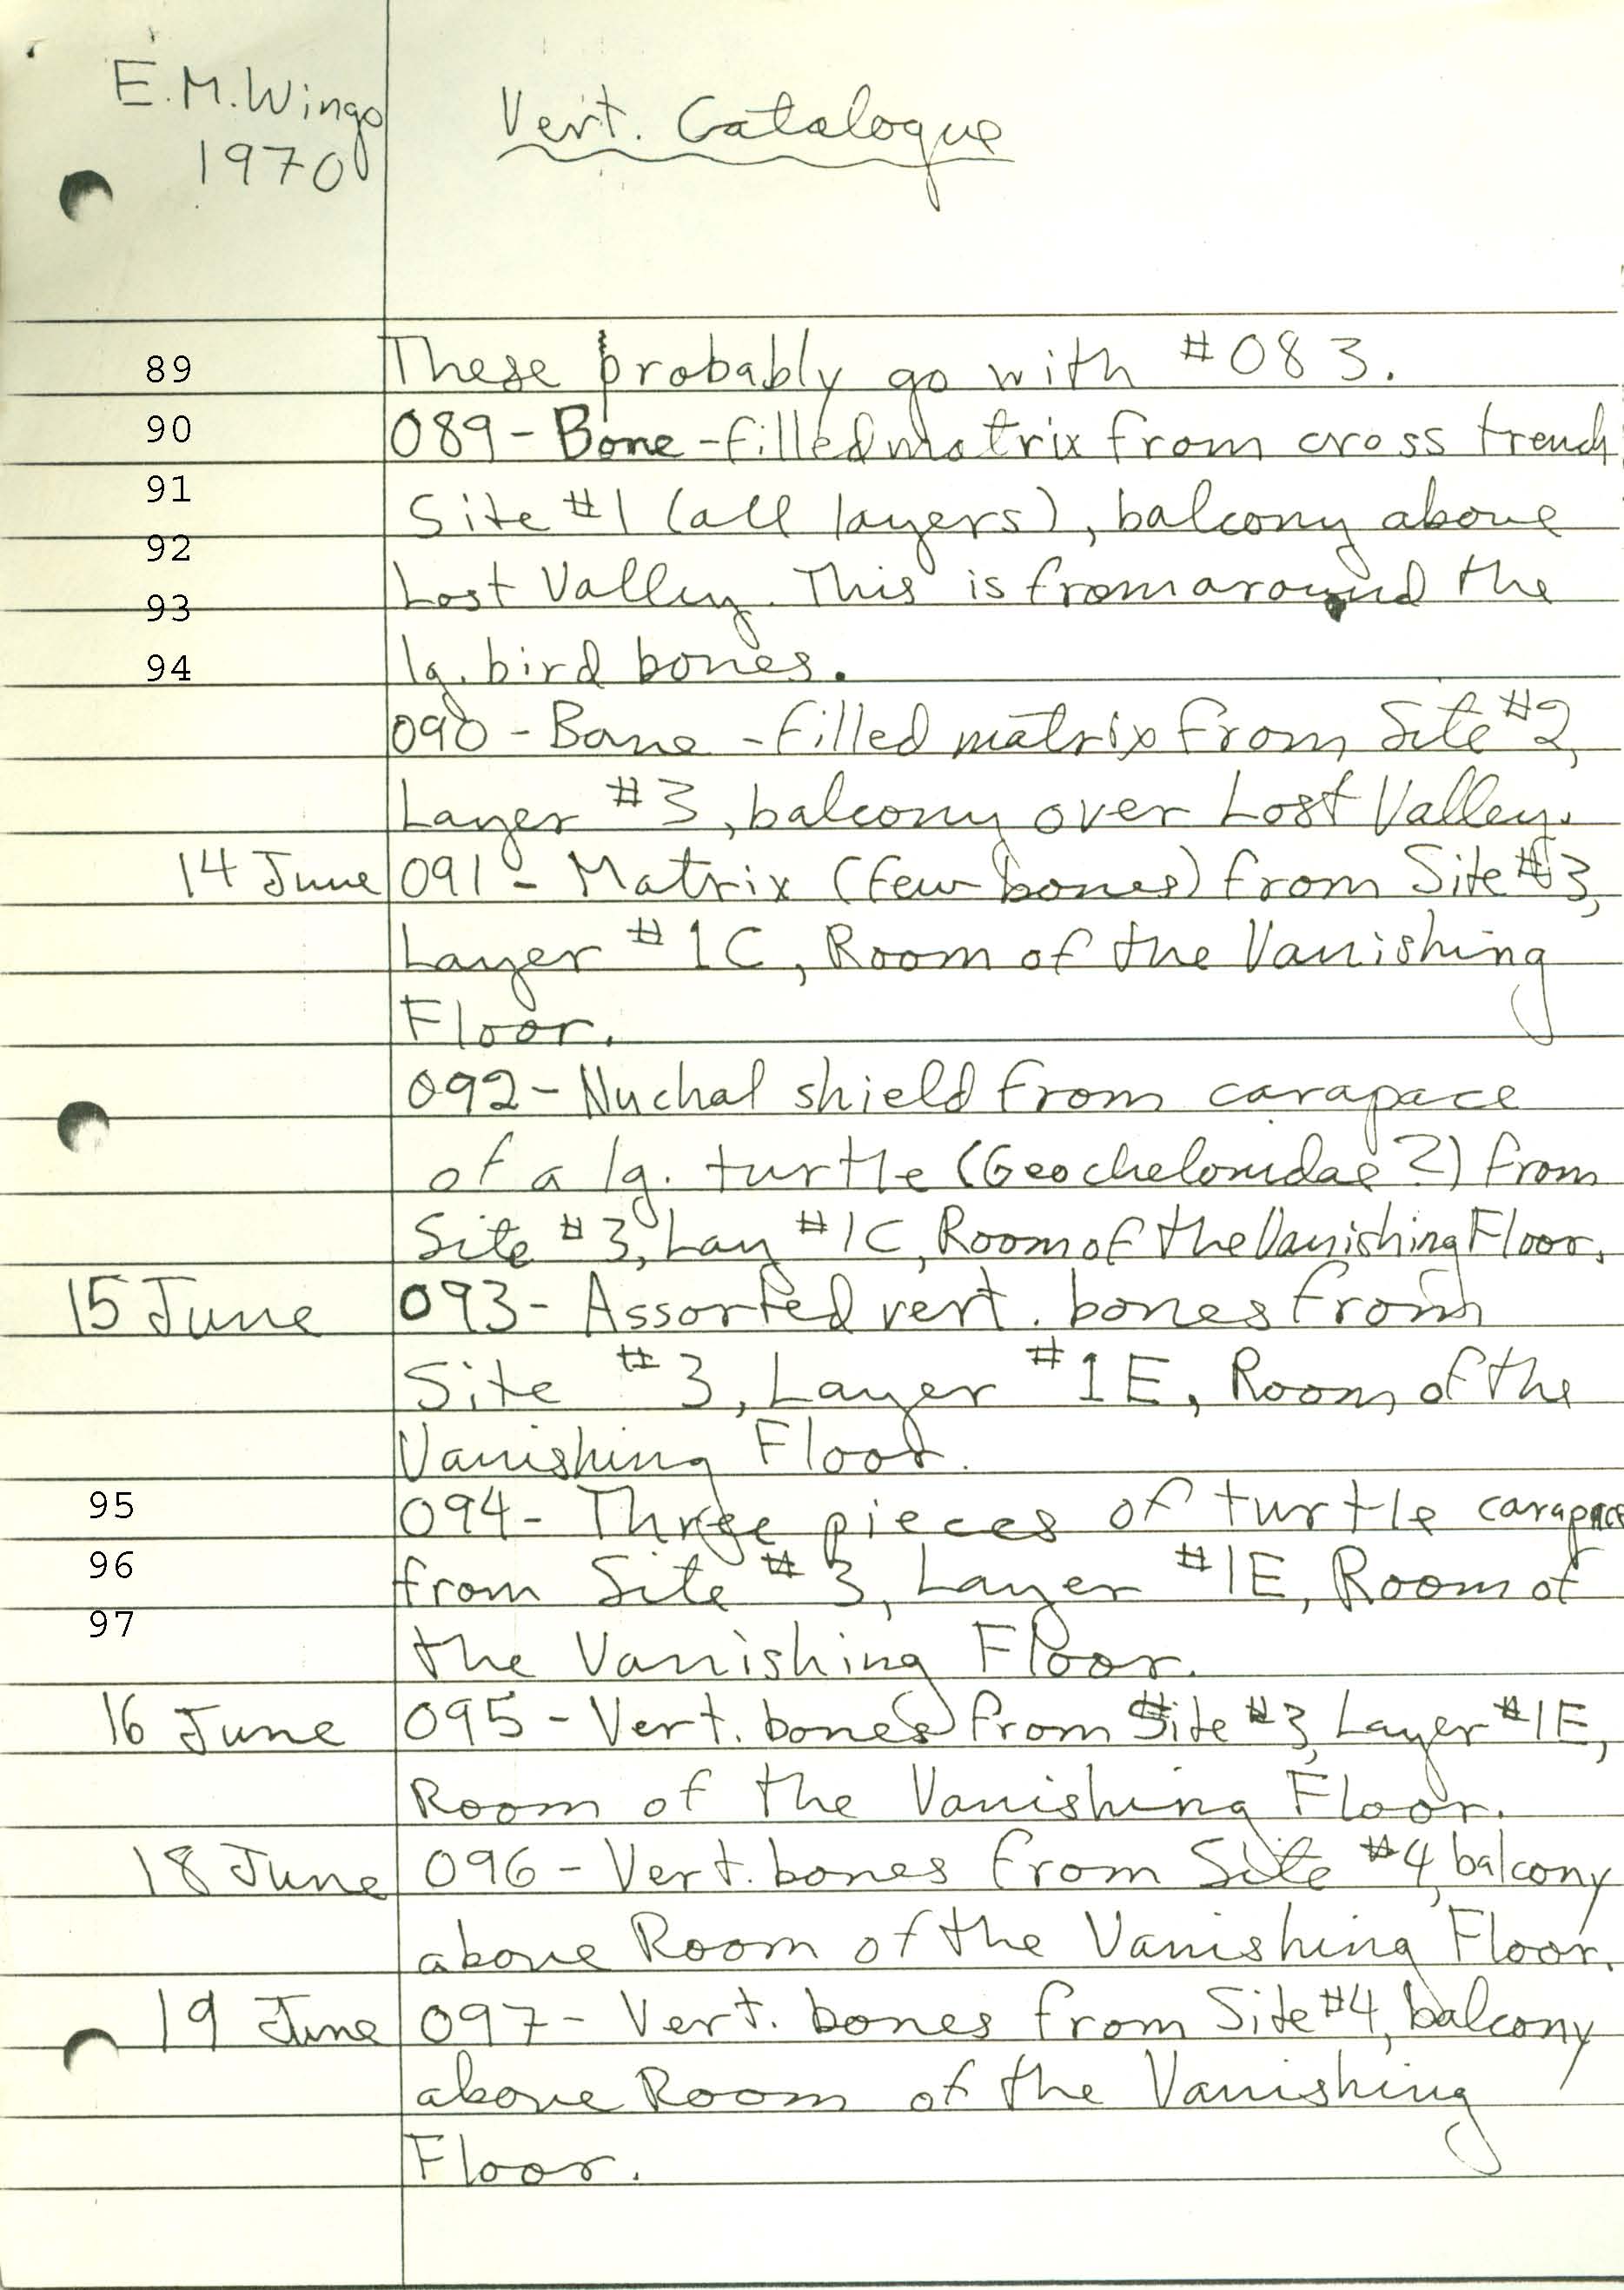 E.M.Wingo
1970
Vert. Catalogue
89 These probably go with #083.
90 089- Bone-filled matrix from cross trench
91 Site #1 (all layers), balcony above
92 Lost Valley. This is from around the
93
94 lg. bird bones.
090 - Bone-filled matrix from Site #2,
Layer #3, balcony over Lost Valley.
14 June 091 - Matrix (few bones) from Site #3,
Layer #1C, Room of the Vanishing
Floor.
092- Nuchal shield from carapace
of a lg. turtle (Geochelonidae?) from
Site #3, Lay #1C, Room of the Vanishing Floor.
15 June 093- Assorted vert. bones from
Site #3, Layer #1E, Room of the
Vanishing Floor.
95 094- Three pieces of turtle carapace
96 from Site #3, Layer #1E, Room of
97 the Vanishing Floor.
16 June 095- Vert. bones from Site #3, Layer #1E,
Room of the Vanishing Floor.
18 June 096- Vert. bones from Site #4, balcony
above Room of the Vanishing Floor.
19 June 097- Vert. bones from Site #4, balcony
above Room of the Vanishing
Floor.